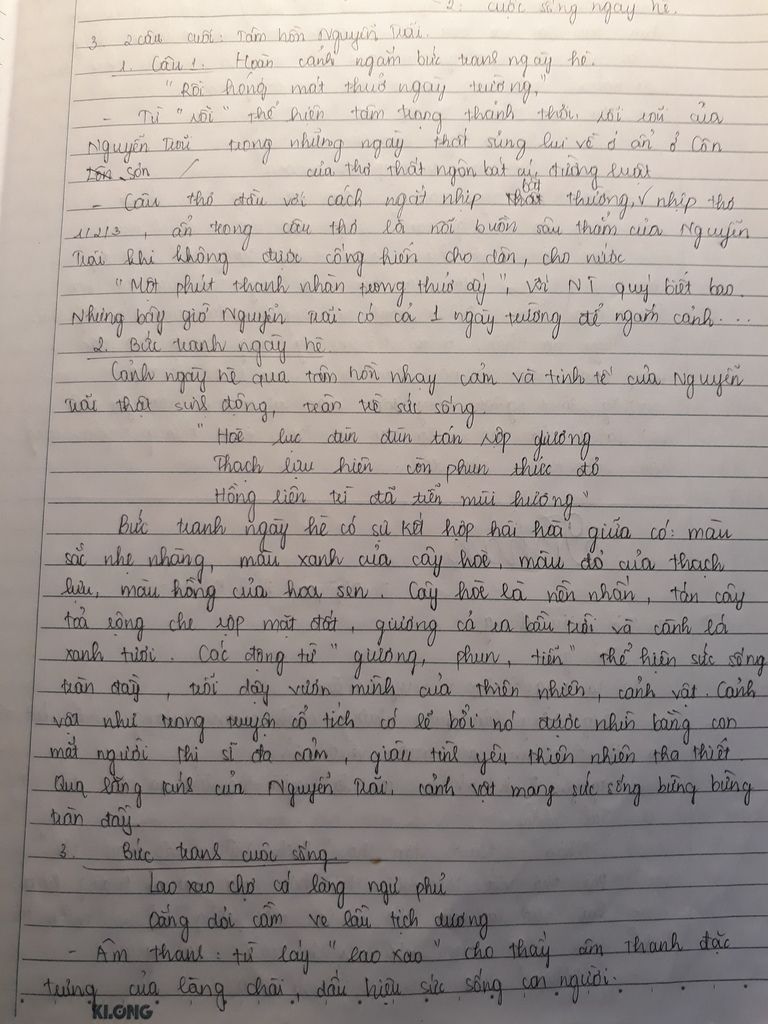 2: cuộc sống ngày hè.
3. 2 câu cuối: Tâm hồn Nguyễn Trãi.
1. Câu 1. Hoàn cảnh ngắm bức tranh ngày hè.
"Rồi hóng mát thuở ngày trường,"
- Từ "rồi" thể hiện tâm trạng thảnh thơi, rỗi rãi của
Nguyễn Trãi trong những ngày thất sủng lui về ở ẩn ở Côn
Sơn / của thơ thất ngôn bát cú, đường luật
- Câu thơ đầu với cách ngắt nhịp bất thường, √ nhịp thơ
1/2/3, ẩn trong câu thơ là nỗi buồn sâu thẳm của Nguyễn
Trãi khi không được cống hiến cho dân, cho nước
"Một phút thanh nhàn trong thuở ấy", với NT quý biết bao.
Nhưng bây giờ Nguyễn Trãi có cả 1 ngày trường để ngắm cảnh...
2. Bức tranh ngày hè.
Cảnh ngày hè qua tâm hồn nhạy cảm và tinh tế của Nguyễn
Trãi thật sinh động, tràn trề sức sống.
"Hoè lục đùn đùn tán rợp giương
Thạch lựu hiên còn phun thức đỏ
Hồng liên trì đã tiễn mùi hương"
Bức tranh ngày hè có sự kết hợp hài hoà giữa có: màu
sắc nhẹ nhàng, màu xanh của cây hoè, màu đỏ của thạch
lựu, màu hồng của hoa sen. Cây hoè là nổi nhân, tán cây
toả rộng che rợp mặt đất, giương cả ra bầu trời và cành lá
xanh tươi. Các động từ "giương, phun, tiễn" thể hiện sức sống
tràn đầy, trỗi dậy vươn mình của thiên nhiên, cảnh vật. Cảnh
vật như trong truyện cổ tích có lẽ bởi nó được nhìn bằng con
mắt người thi sĩ đa cảm, giàu tình yêu thiên nhiên tha thiết.
Qua lăng kính của Nguyễn Trãi, cảnh vật mang sức sống bừng bừng
tràn đầy.
3. Bức tranh cuộc sống
Lao xao chợ cá làng ngư phủ
Dắng dỏi cầm ve lầu tịch dương
- Âm thanh: từ láy "lao xao" cho thấy âm thanh đặc
trưng của làng chài, dấu hiệu sức sống con người.
KLONG